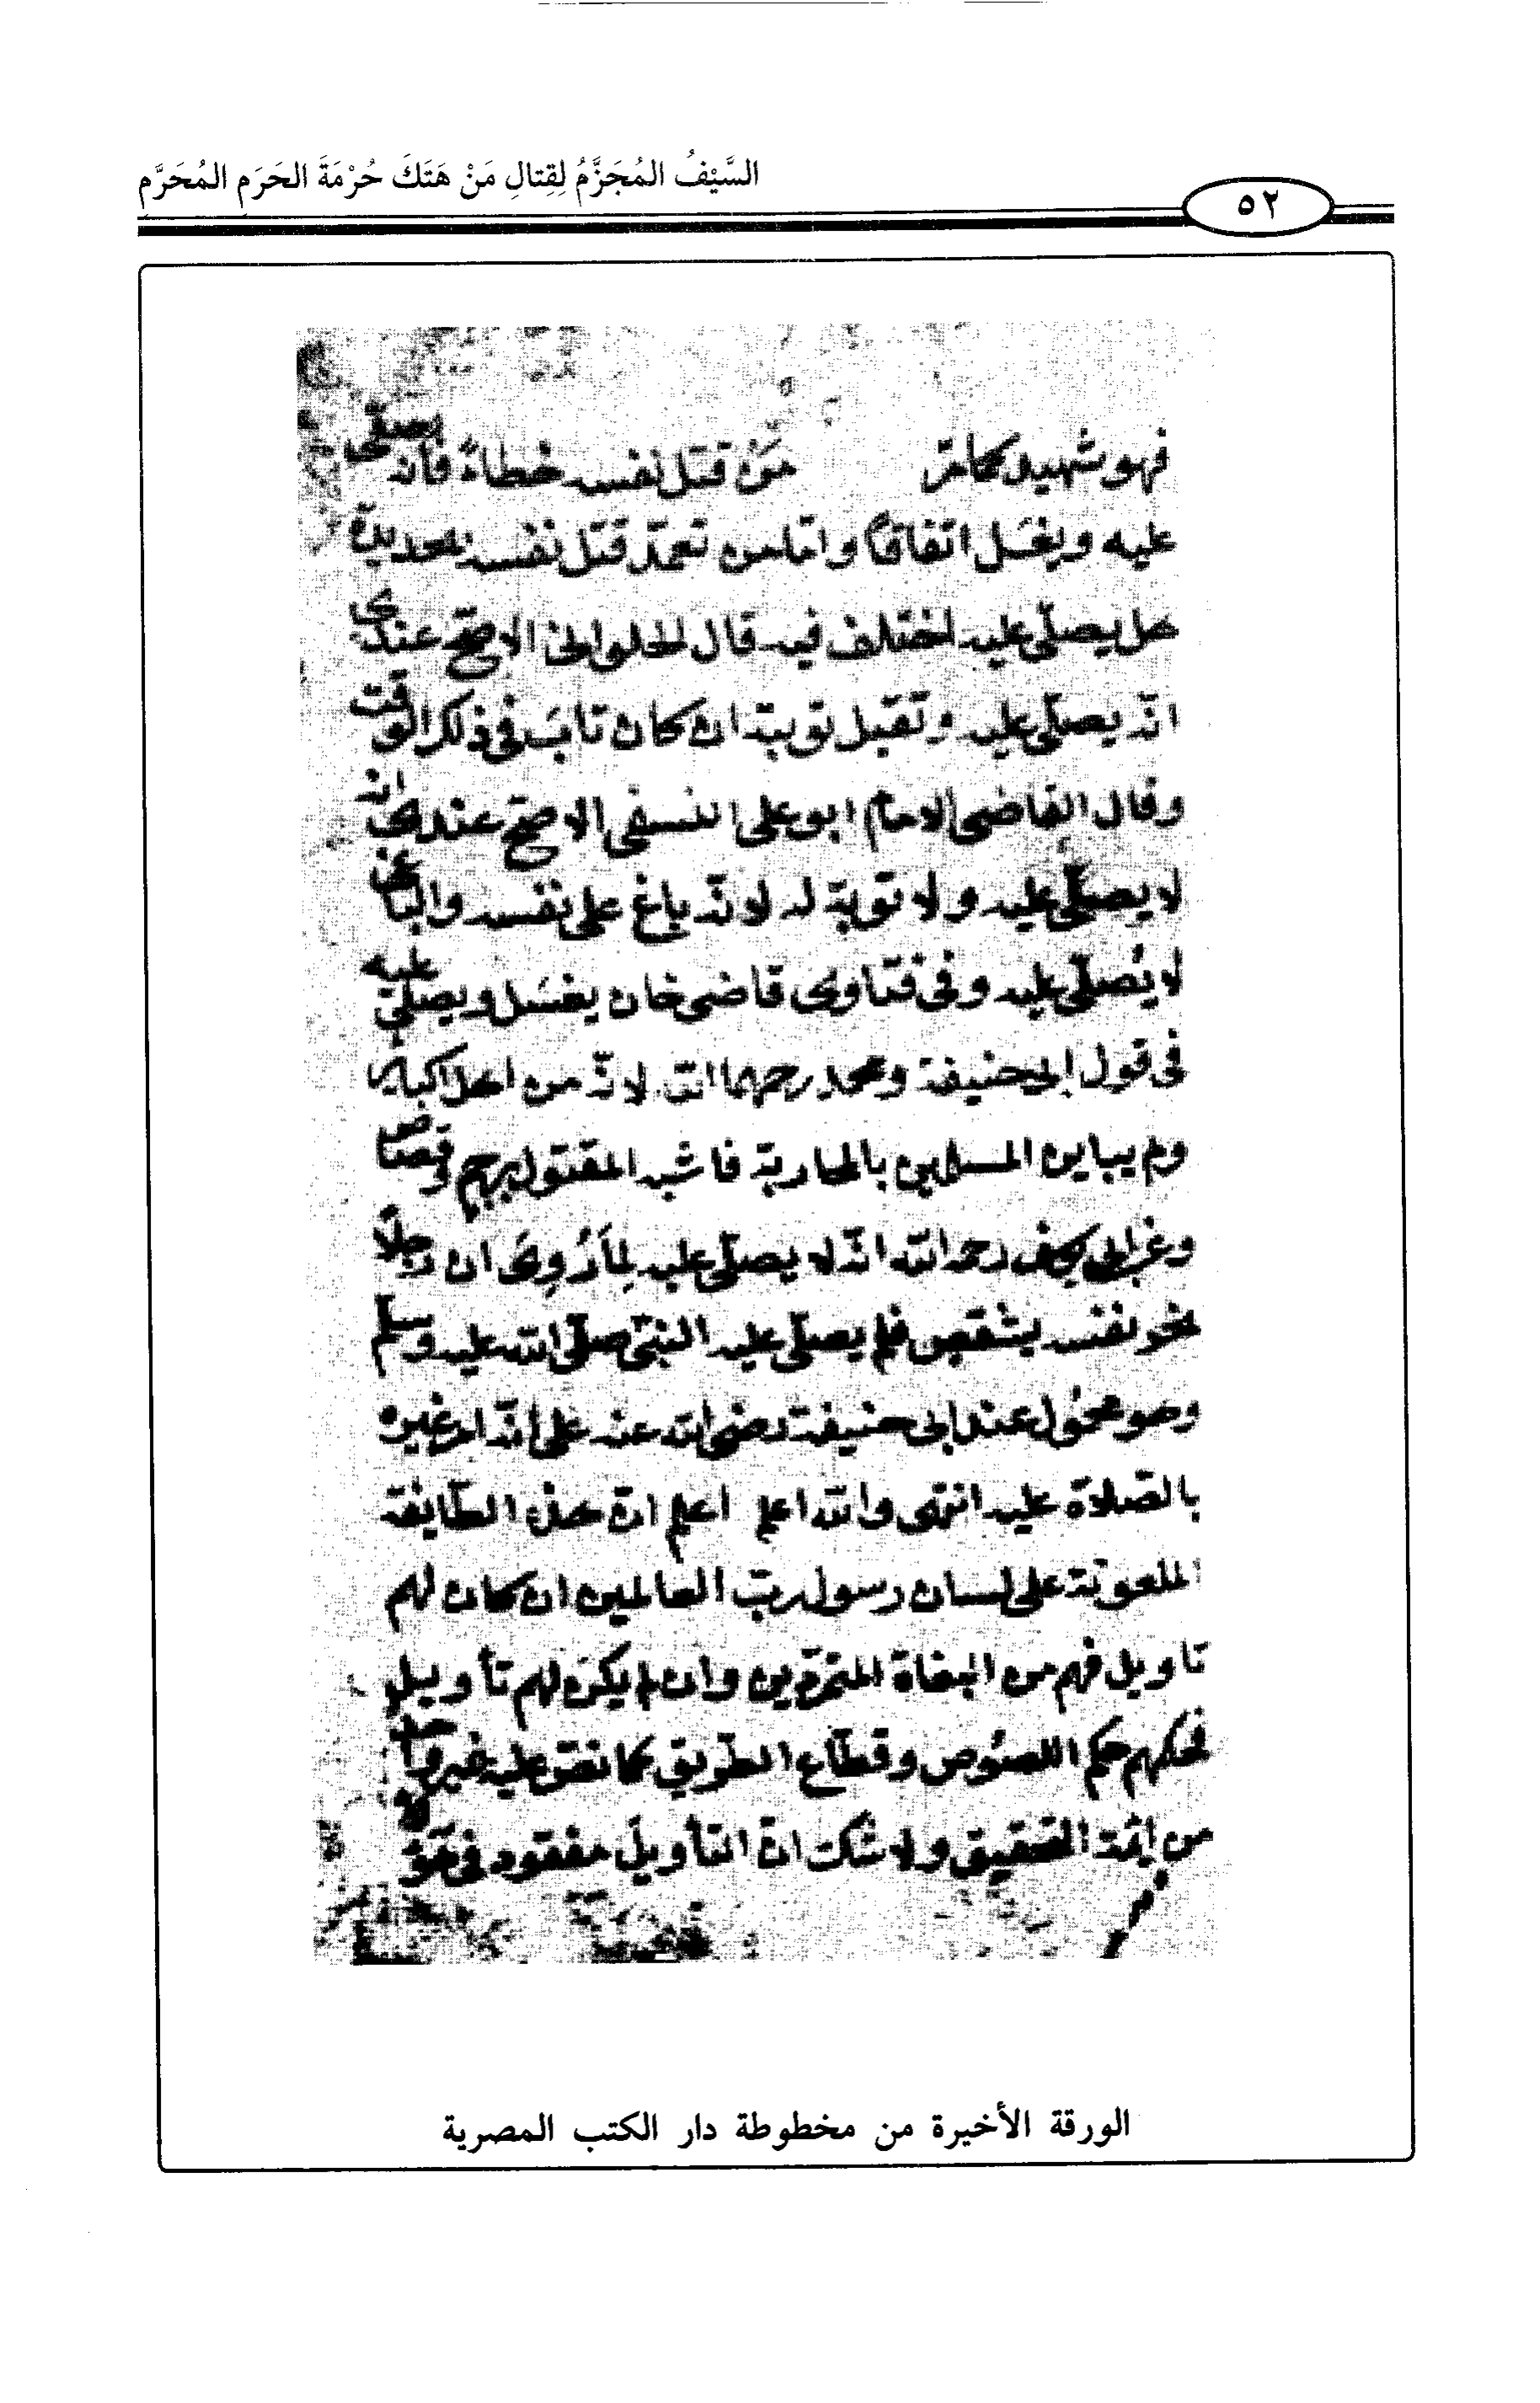 السَّيْفُ المُجَزَّمُ لِقِتالِ مَنْ هَتَكَ حُرْمَةَ الحَرَمِ المُحَرَّمِ
٥٢
فهو شهيد كما مرّ مَنْ قتل نفسه خطاءً فانه يصلّى
عليه ويغسل اتفاقًا وامّا من تعمّد قتل نفسه بحديدة
هل يصلّى عليه اختلف فيه قال الحلوانى الاصحّ عندى
انّه يصلّى عليه وتقبل توبته ان كان تاب فى ذلك الوقت
وقال القاضى الامام ابو على النسفى الاصحّ عندى انه
لا يصلّى عليه ولا توبة له لانّه باغ على نفسه والباغى
لا يُصلّى عليه وفى فتاوى قاضى خان يغسل ويصلّى عليه
فى قول ابى حنيفة ومحمد رحمهما الله لانّه من اهل الكباير
ولم يباين المسلمين بالمحاربة فاشبه المقتول برجم وقصاص
وعن ابى يوسف رحمه الله انّه لا يصلّى عليه لِمَا رُوِىَ ان رجلًا
نحر نفسه بمشقص فلم يصلّى عليه النبىّ صلّى الله عليه وسلّم
وهو محمول عند ابى حنيفة رضى الله عنه على انّه امر غيره
بالصّلاة عليه انتهى والله اعلم اعلم انّ هذه الطّايفة
الملعونة على لسان رسول ربّ العالمين ان كان لهم
تاويل فهم من البغاة وان لم يكن لهم تأويل
فحكمهم حكم اللصوص وقطّاع الطّريق كما نصّ عليه غير واحد
من ايمّة التحقيق ولا شكّ انّ التأويل مفقود فى حقّ
الورقة الأخيرة من مخطوطة دار الكتب المصرية